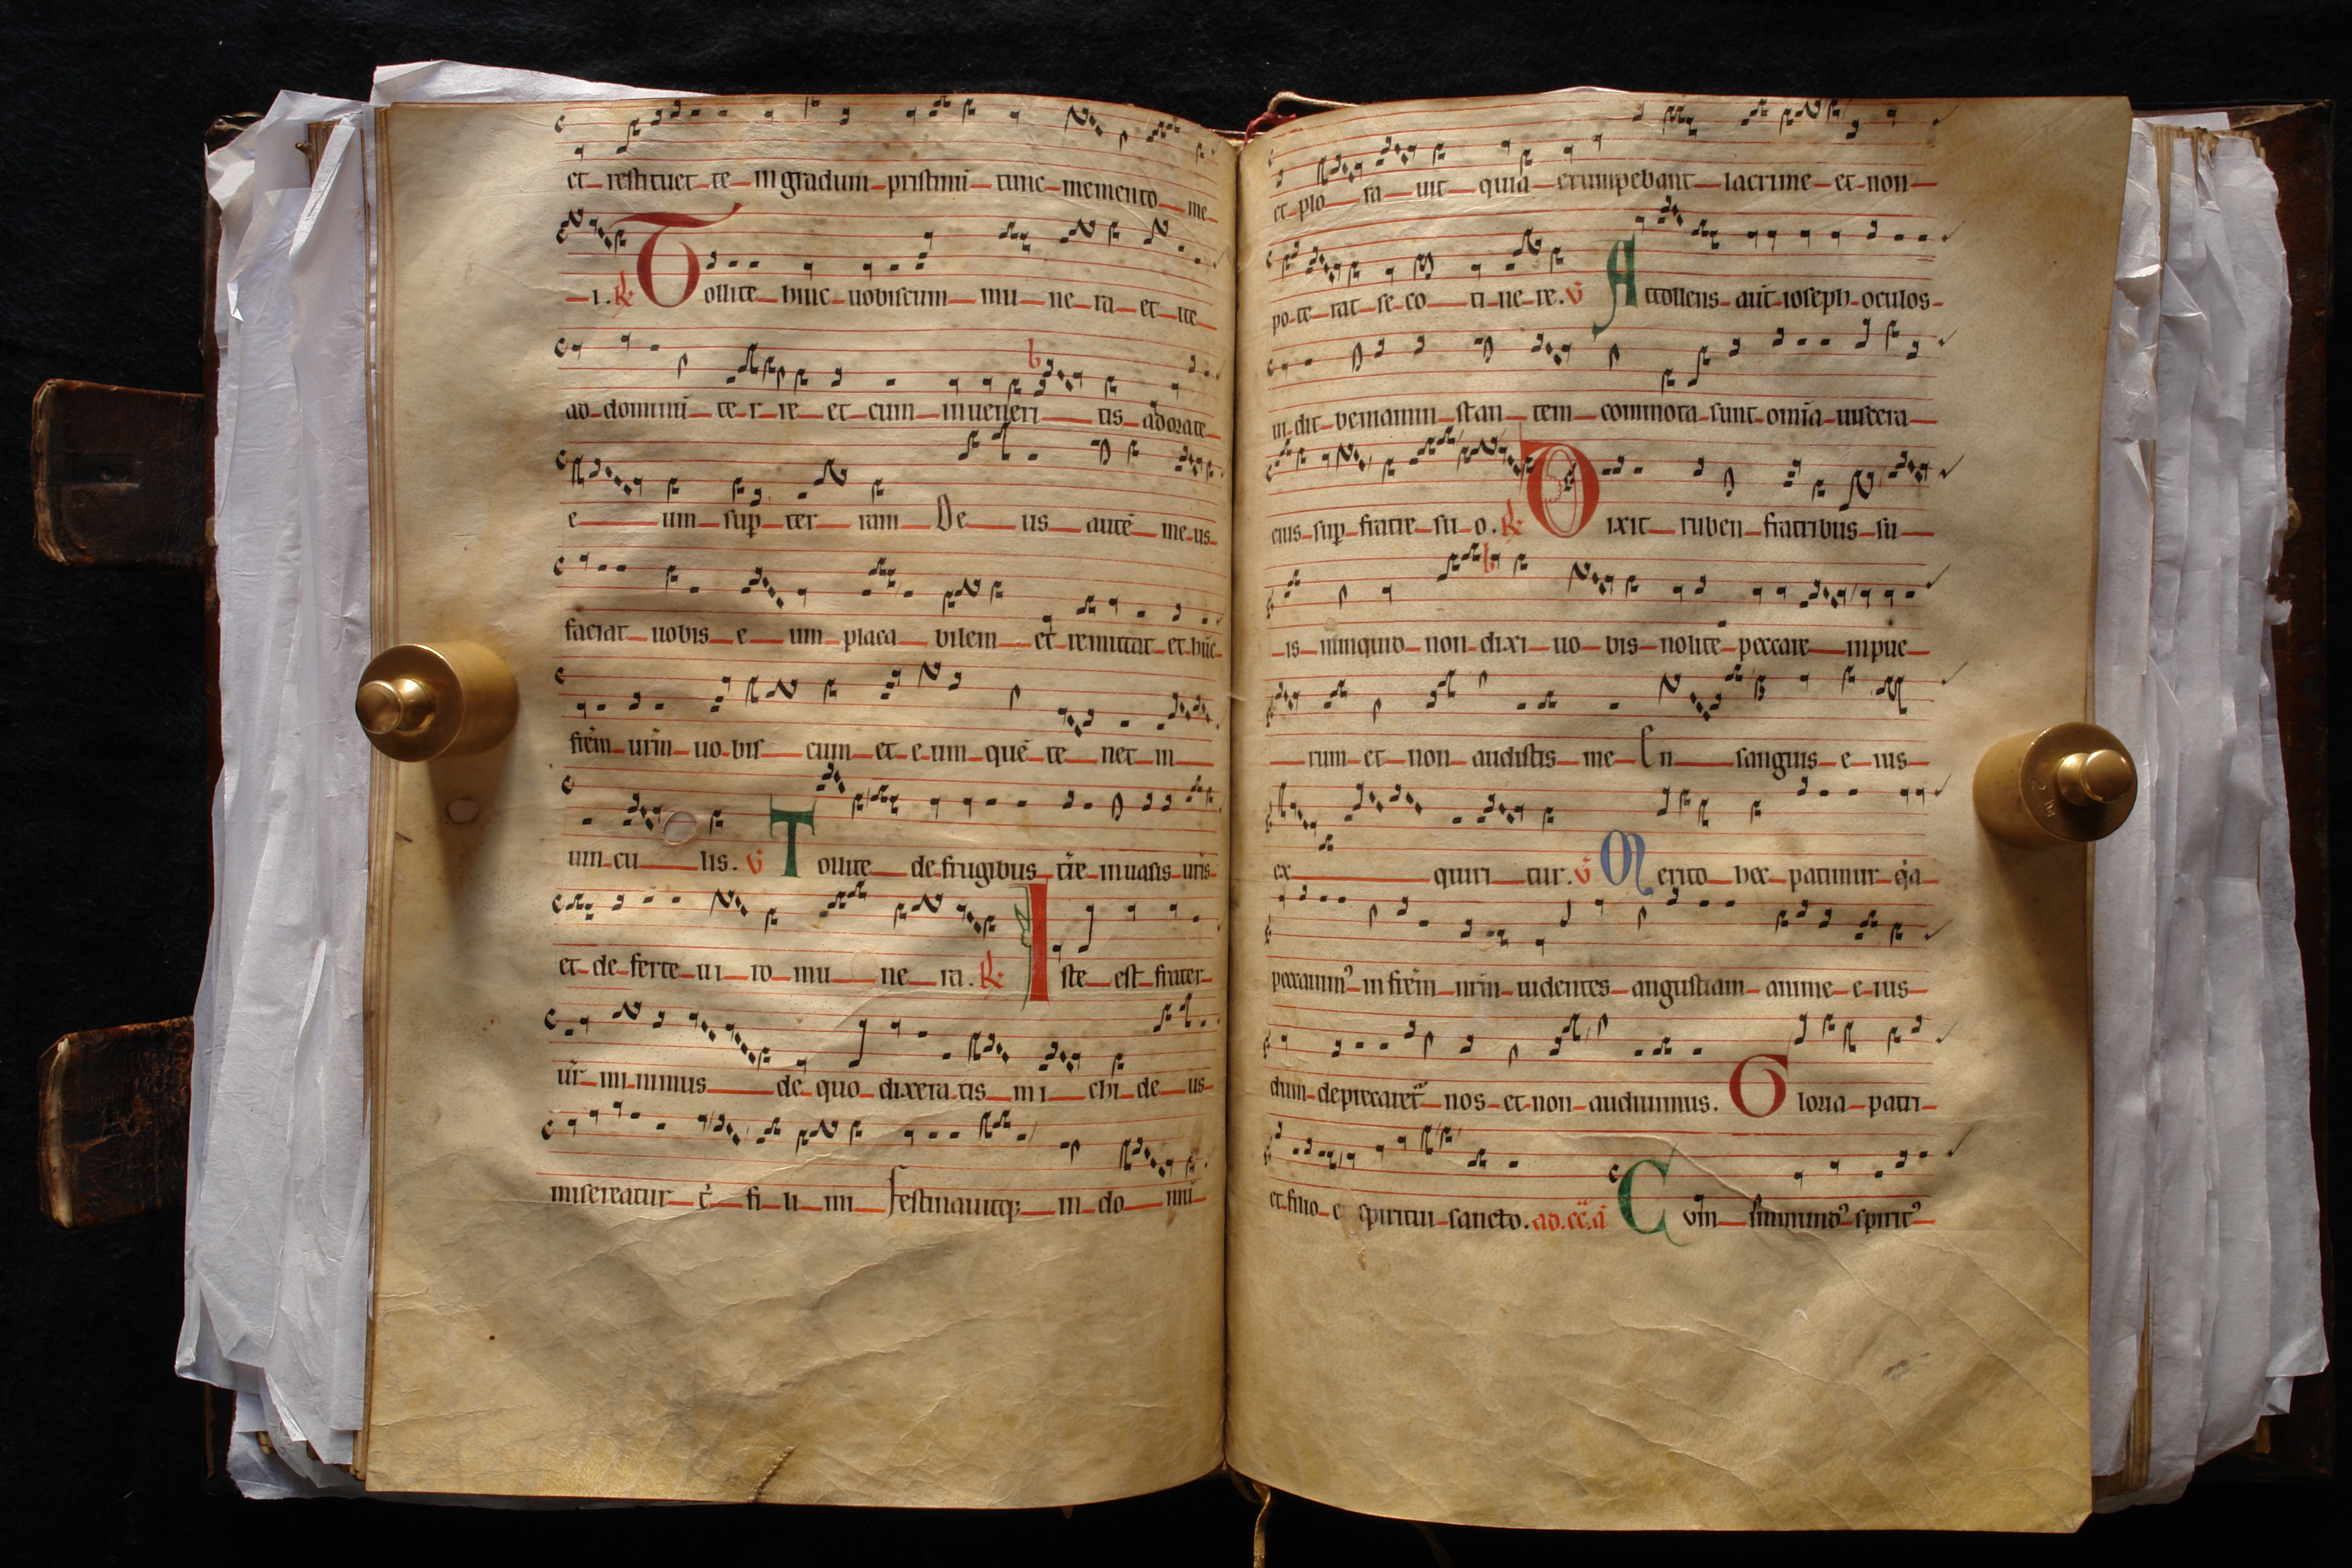 et restituet te in gradum pristinū tunc memento me
i. R̸ Tollite hinc uobiscum mu ne ra et ite
ad dominū te r re et cum inueneri tis adorate
e um sup̱ ter ram De us autē me us
faciat uobis e um placa bilem et remittat et hūc
fr̄em ur̄m uo bis cum et e um quē te net in
uin cu lis. V̄ Tollite de frugibus t̄re in uasis ur̄is
et de ferte ui ro mu ne ra. R̸ Iste est frater
ur̄ mi nimus de quo dixera tis mi chi de us
misereatur t̄ fi li mi Festinauitq; in do mū
et plo ra uit quia erumpebant lacrime et non
po te rat se cō ti ne re. V̄ Attollens aūt ioseph oculos
ui dit beniamin stan tem commota sunt omīa uiscera
eius sup̱ fratre su o. R̸ Dixit ruben fratribus su
is nunquid non dixi uo bis nolite peccare in pue
rum et non audistis me En sanguis e ius
ex quiri tur. V̄ Merito hec patimur q̇a
peccauimꝰ in fr̄em nr̄m uidentes angustiam anime e ius
dum deprecaret᷑ nos et non audiuimus. Gloria patri
et filio e spiritui sancto. ad. cc̄. a Cum īmundꝰ spiritꝰ